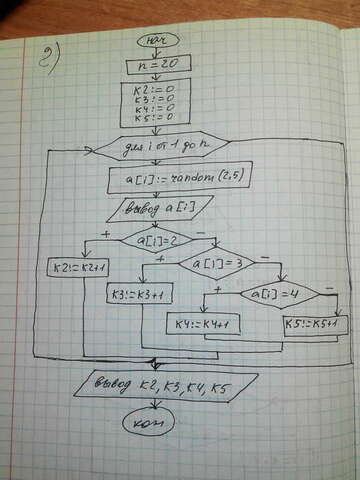 2)
нач
n = 20
K2:=0
K3:=0
K4:=0
K5:=0
для i от 1 до n
a[i]:=random(2,5)
вывод a[i]
+ a[i]=2 -
K2:=K2+1
+ a[i]=3 -
K3:=K3+1
+ a[i]=4 -
K4:=K4+1
K5:=K5+1
вывод K2, K3, K4, K5
кон